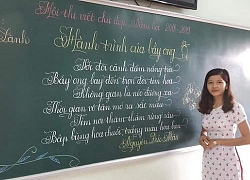 Hội thi viết chữ đẹp - Năm học 2018-2019
Hành trình của bầy ong
Với đôi cánh đẫm nắng trời
Bầy ong bay đến trọn đời tìm hoa
Không gian là nẻo đường xa
Thời gian vô tận mở ra sắc màu
Tìm nơi thăm thẳm rừng sâu
Bập bùng hoa chuối, trắng màu hoa ban
Nguyễn Đức Mậu